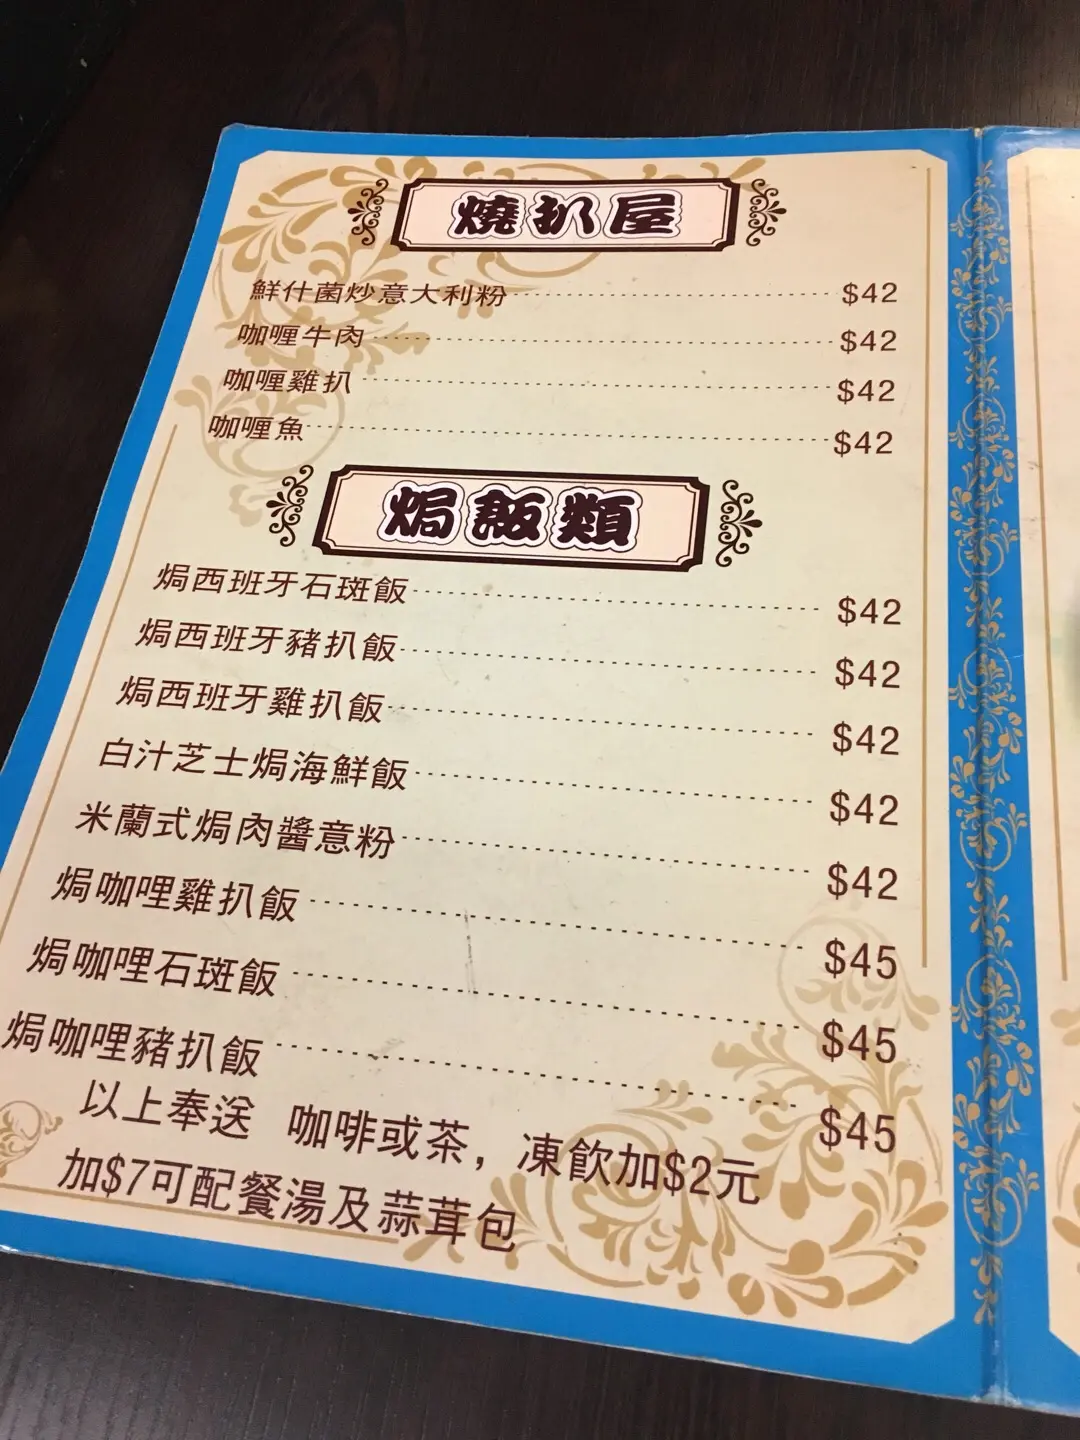 燒扒屋
鮮什菌炒意大利粉 $42
咖喱牛肉 $42
咖喱雞扒 $42
咖喱魚 $42
焗飯類
焗西班牙石斑飯 $42
焗西班牙豬扒飯 $42
焗西班牙雞扒飯 $42
白汁芝士焗海鮮飯 $42
米蘭式焗肉醬意粉 $42
焗咖哩雞扒飯 $45
焗咖哩石斑飯 $45
焗咖哩豬扒飯 $45
以上奉送 咖啡或茶，凍飲加$2元
加$7可配餐湯及蒜茸包